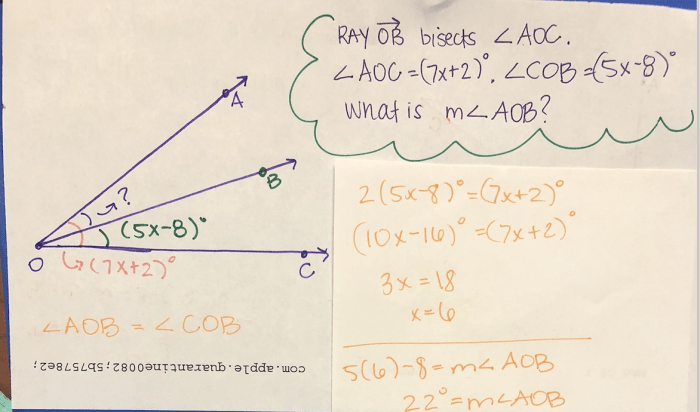 RAY OB bisects ∠AOC.
∠AOC=(7x+2)°. ∠COB=(5x-8)°
What is m∠AOB?
A
?
B
(5x-8)°
O
C
(7x+2)°
∠AOB = ∠COB
com.apple.quarantine0082;5b7578e2;
2(5x-8)°=(7x+2)°
(10x-16)°=(7x+2)°
3x=18
x=6
5(6)-8=m∠AOB
22°=m∠AOB